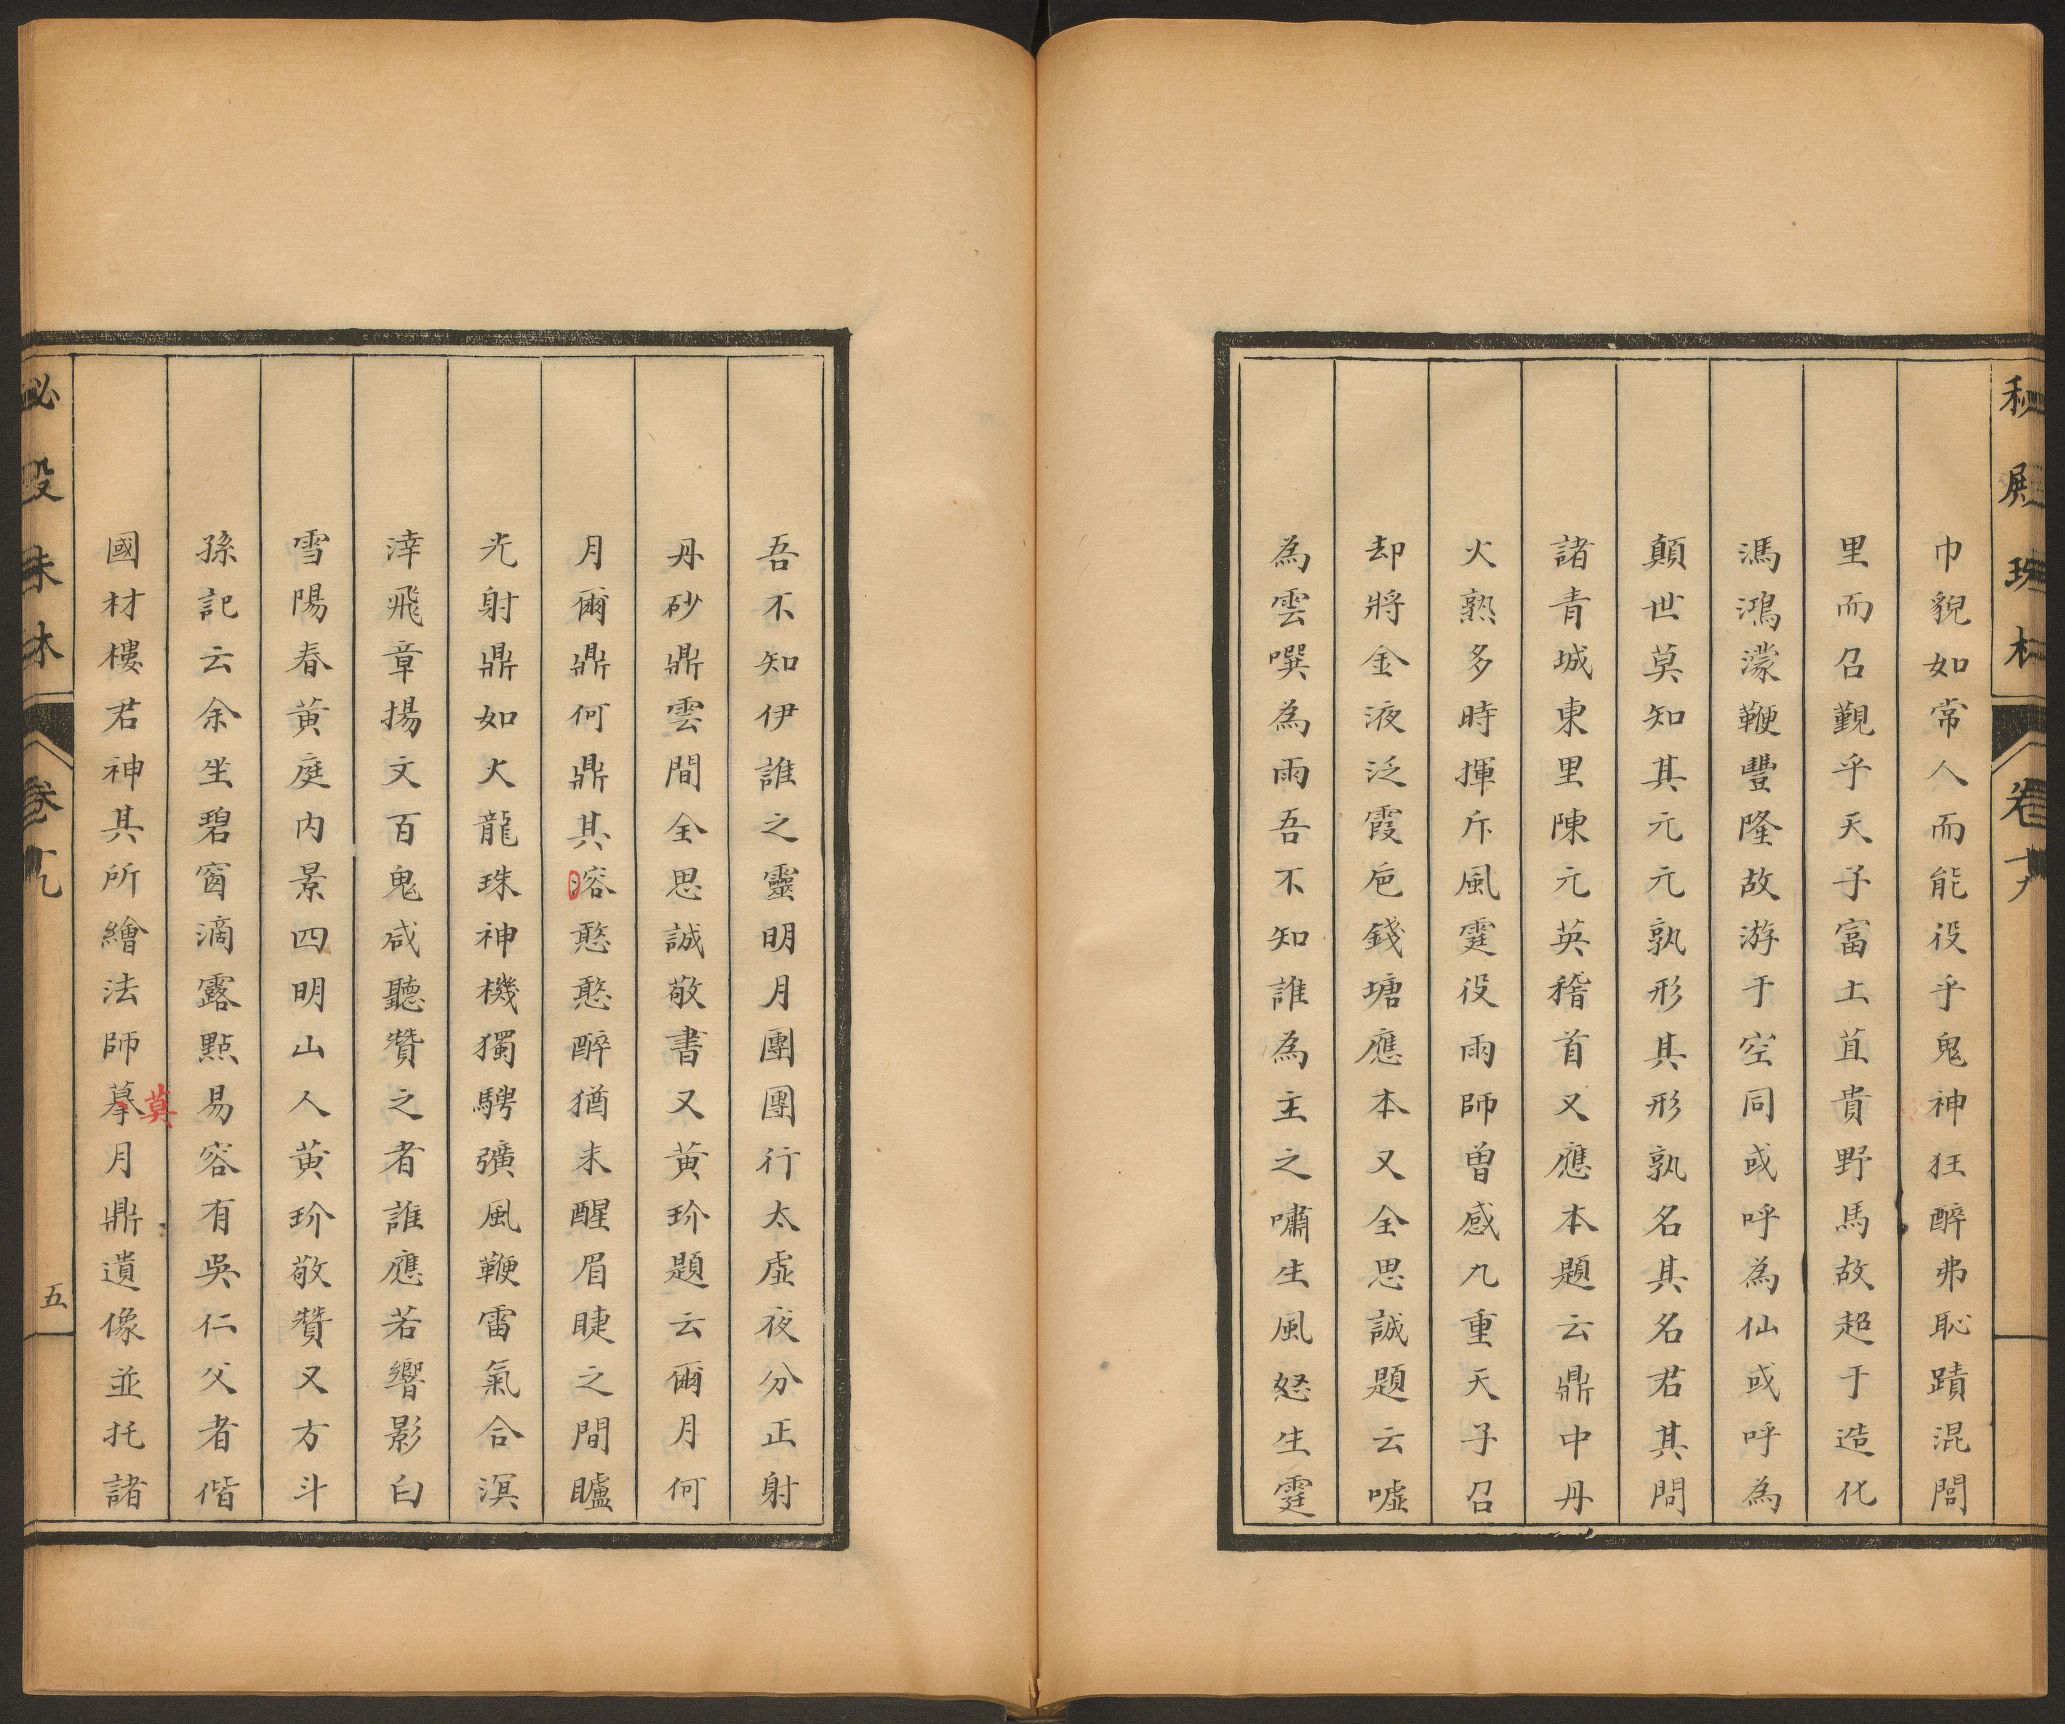 秘殿珠林 卷十九
巾貌如常人而能役乎鬼神狂醉弗恥蹟混閭
里而召覲乎天子富土苴貴野馬故超于造化
馮鴻濛鞭豐隆故游于空同或呼為仙或呼為
顛世莫知其元元孰形其形孰名其名君其問
諸青城東里陳元英稽首又應本題云鼎中丹
火熟多時揮斥風霆役雨師曾感九重天子召
却將金液泛霞卮錢塘應本又全思誠題云噓
為雲噀為雨吾不知誰為主之嘯生風怒生霆
吾不知伊誰之靈明月團團行太虛夜分正射
丹砂鼎雲間全思誠敬書又黃玠題云爾月何
月爾鼎何鼎其溶憨憨醉猶未醒眉睫之間矑
光射鼎如火龍珠神機獨騁彍風鞭雷氣合溟
涬飛章揚文百鬼咸聽贊之者誰應若響影白
雪陽春黃庭內景四明山人黃玠敬贊又方斗
孫記云余坐碧窗滴露點易容有吳仁父者偕
莫
國材樓君神其所繪法師摹月鼎遺像並托諸
秘殿珠林 卷十九 五